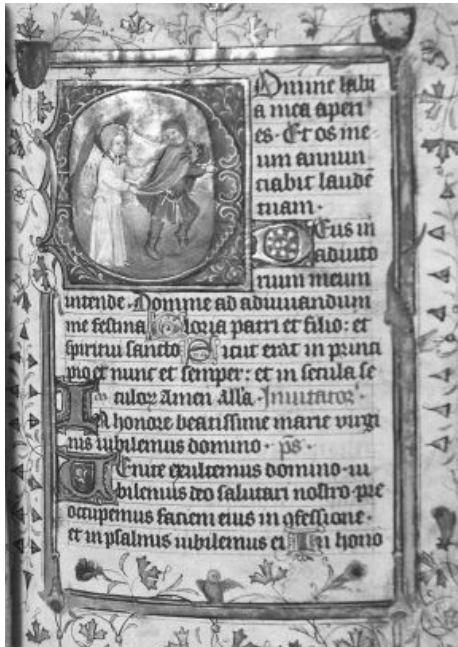 Omine labi
a mea aperi
es. Et os me-
um annun
ciabit laudē
tuam.
Eus in
adiuto
rium meum
intende. Domine ad adiuuandum
me festina Gloria patri et filio: et
spiritui sancto Sicut erat in princi
pio et nunc et semper: et in secula se
culor Amen All'a. Inuitator'
In honore beatissime marie virgi
nis iubilemus domino. ps.
Uenite exultemus domino iu
bilemus deo salutari nostro pre
occupemus faciem eius in ꝯfessione.
et in psalmis iubilemus ei In hono